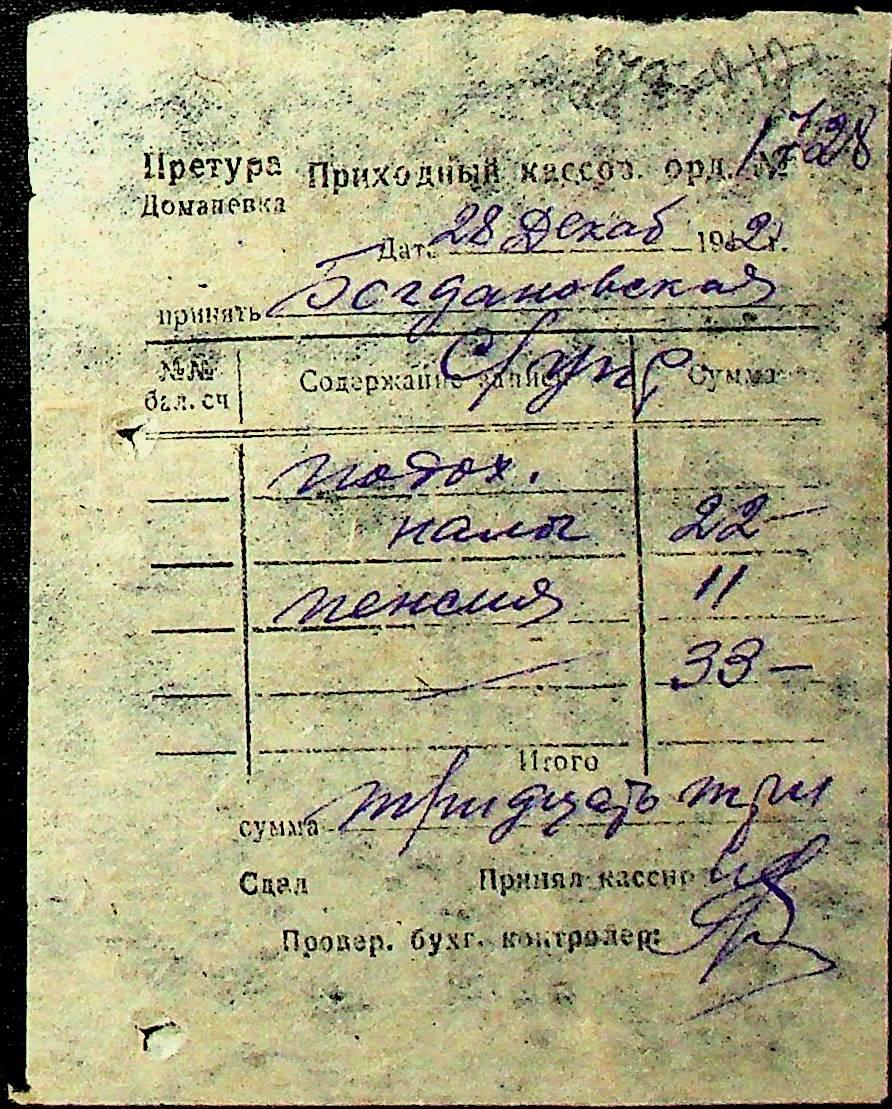 Претура Приходный кассов. орд. № 1728
Доманевка
Дата 28 Декаб 1942 г.
принять Богдановская
№№ бал. сч Содержание записи Сумма
подох.
налог 22—
пенсия 11
33—
Итого
сумма тридцать три
Сдал Принял кассир
Провер. бухг. контролер: